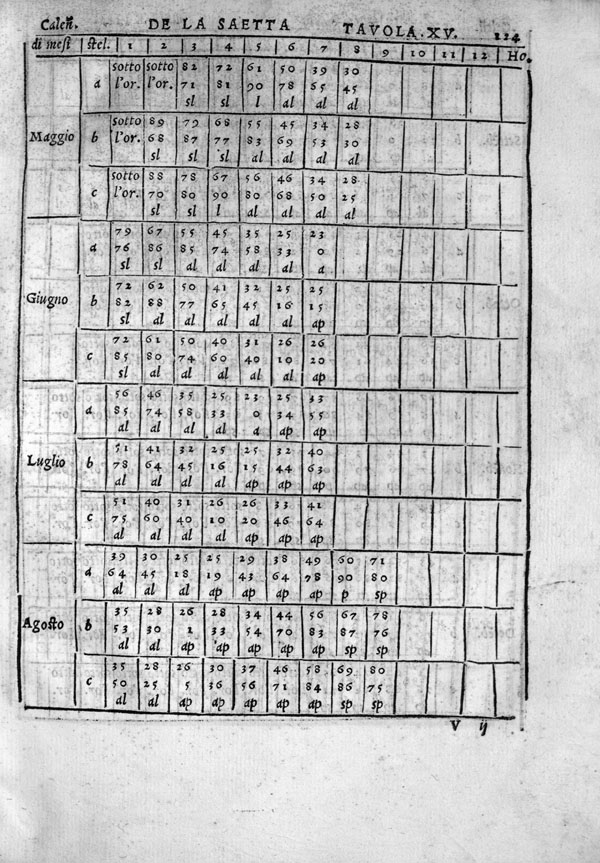 Caleñ. DE LA SAETTA TAVOLA.XV. 124
di mesi stel. 1 2 3 4 5 6 7 8 9 10 11 12 Ho.
sotto sotto 82 72 61 50 39 30
a l'or. l'or. 71 81 90 78 65 45
sl sl l al al al
sotto 89 79 68 55 45 34 28
Maggio b l'or. 68 87 77 83 69 53 30
sl sl sl al al al al
sotto 88 78 67 56 46 34 28
c l'or. 70 80 90 80 68 50 25
sl sl l al al al al
79 67 55 45 35 25 23
a 76 86 85 74 58 33 0
sl sl al al al al a
72 62 50 41 32 25 25
Giugno b 82 88 77 65 45 16 15
sl al al al al al ap
72 61 50 40 31 26 26
c 85 80 74 60 40 10 20
sl al al al al al ap
56 46 35 25 23 25 33
a 85 74 58 33 0 34 55
al al al al a ap ap
51 41 32 25 25 32 40
Luglio b 78 64 45 16 15 44 63
al al al al ap ap ap
51 40 31 26 26 33 41
c 75 60 40 10 20 46 64
al al al al ap ap ap
39 30 25 25 29 38 49 60 71
a 64 45 18 19 43 64 78 90 80
al al al ap ap ap ap p sp
35 28 26 28 34 44 56 67 78
Agosto b 53 30 1 33 54 70 83 87 76
al al ap ap ap ap ap sp sp
35 28 26 30 37 46 58 69 80
c 50 25 5 36 56 71 84 86 75
al al ap ap ap ap ap sp sp
V ij